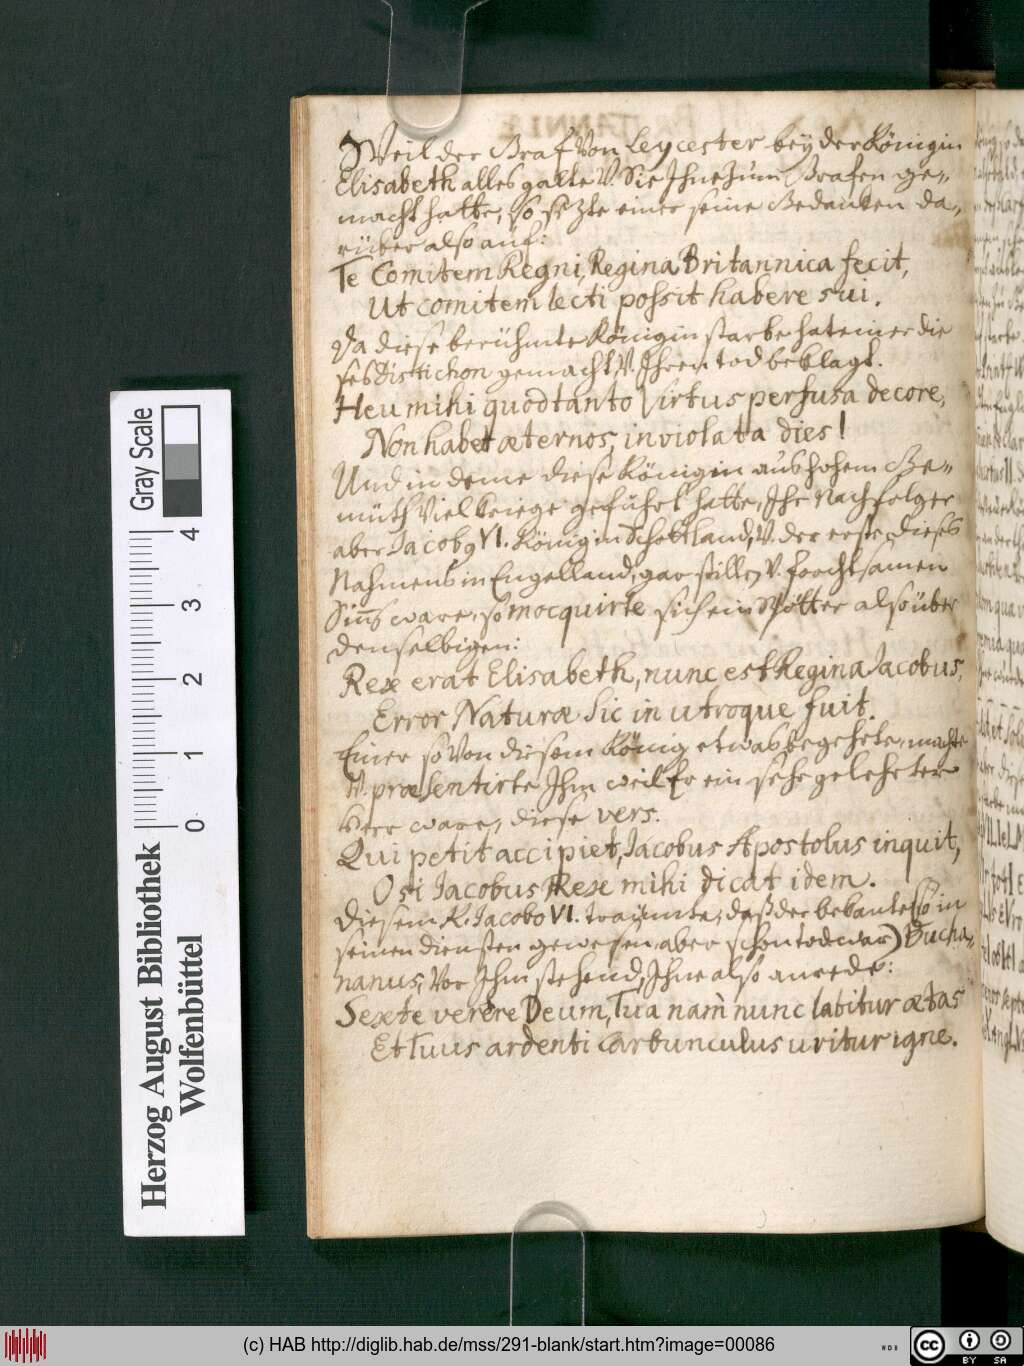 Weil der Graf Von Leycester bey der Königin
Elisabeth alles galte V. Sie Ihne zum Grafen ge-
macht hatte, so setzte einer seine Gedancken da-
rüber also auf:
Te Comitem Regni, Regina Britannica fecit,
Ut comitem lecti possit habere sui.
Da diese berühmte Königin starbe hat einer die
ses Distichon gemacht, V. Ihren tod beklagt.
Heu mihi quod tanto Virtus perfusa decore,
Non habet æternos, inviolata dies!
Und in deme diese Königin aus hohem Ge-
müth Viel kriege geführt hatte, Ihr Nachfolger
aber Jacobg VI. König in Schottland, V. der erste dieses
Nahmens in Engelland, gar stillen V. forchtsamen
Siñs ware, so mocquirte sich ein Spötter also über
denselbigen:
Rex erat Elisabeth, nunc est Regina Jacobus,
Error Naturæ sic in utroque fuit.
Einer so Von diesem König etwas begehrte, machte
V. præsentirte Ihm weil Er ein sehr gelehrter
Herr ware, diese vers.
Qui petit accipiet, Jacobus Apostolus inquit,
O si Jacobus Rex mihi dicat idem.
Diesem K. Jacobo VI. traumte, daß der bekante (so in
seinen diensten gewesen, aber schon tod war) Bucha-
nanus, Vor Ihm stehend, Ihne also anrede:
Sexte verere Deum, Tua nam nunc labitur ætas
Et Tuus ardenti Carbunculus uritur igne.
Gray Scale
0 1 2 3 4
Herzog August Bibliothek
Wolfenbüttel
(c) HAB http://diglib.hab.de/mss/291-blank/start.htm?image=00086
WDB
cc BY SA